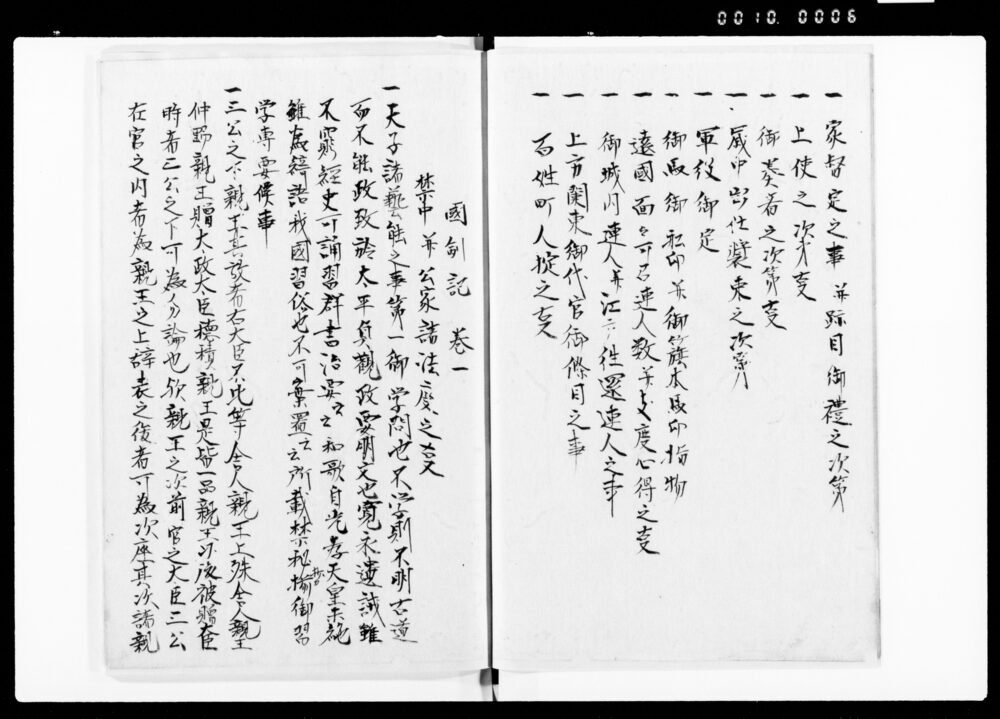 0010. 0006
一 家督定之事 并跡目御禮之次第
一 上使之次第事
一 御奏者之次第事
一 歳中出仕裝束之次第
一 軍役御定
一 御馬御私印并御籏本馬印指物
一 遠國面々可召連人数并支度心得之事
一 御城内連人并江戸往還連人之事
一 上方関東御代官御條目之事
一 百姓町人掟之事
國制記 巻一
禁中并公家諸法度之事
一天子諸藝能之事第一御学問也不学則不明古道
而不能政致於太平貞觀政要明文也寛永遺誡雖
不窮經史可誦習群書治要云云和歌自光孝天皇未絶
雖為綺語我國習俗也不可棄置云云所載禁秘抄御習
学専要候事
一三公之下親王其故者右大臣不比等舎人親王上殊舎人親王
仲野親王贈大政大臣穂積親王是皆一品親王以後被贈大臣
時者三公之下可為勿論也歟親王之次前官之大臣三公
在官之内者為親王之上辞表之後者可為次座其次諸親